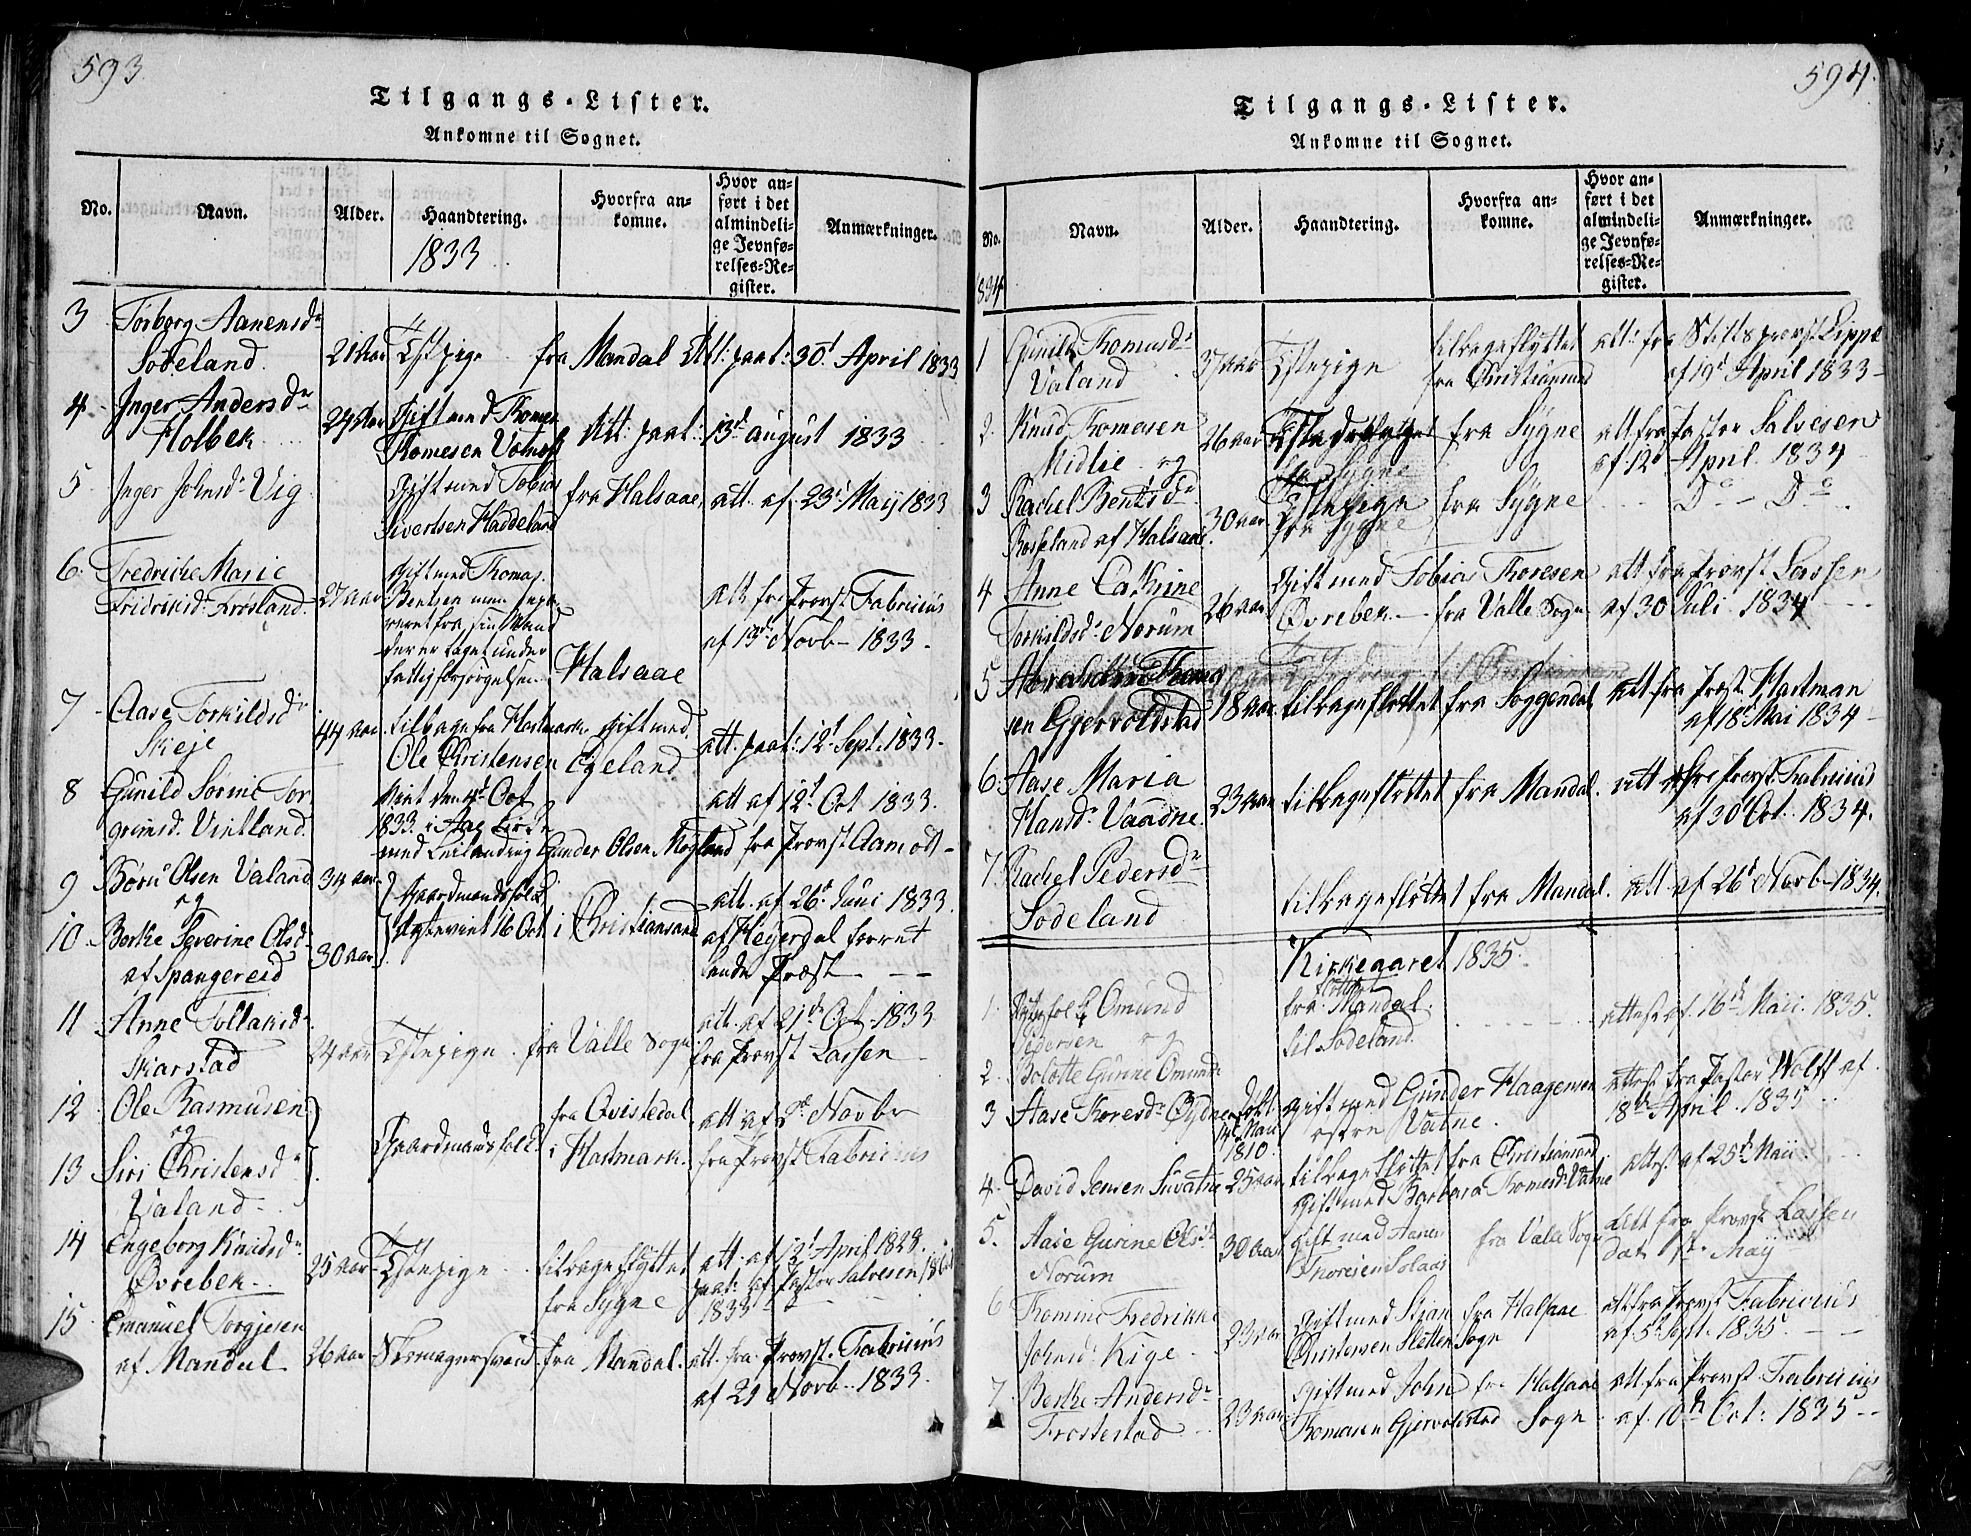 593.
Tilgangs-Lister.
Ankomne til Sognet.
No.
Navn.
Alder.
Haandtering.
1833
Hvorfra an-
komne.
Hvor an-
ført i det
almindeli-
ge Jevnfø-
relses-Re-
gister.
Anmærkninger.
3 Torborg Aanensdr
Sodeland. 21 Aar Tstpige fra Mandal Att: paat: 30t April 1833
4 Inger Andersdr
Holbek 24 Aar Gift med Thomas
Thomesen Att: paat: 13d August 1833
5 Inger Johnsdr Vig Gift med Tobias
Sivertsen Haddeland fra Halsaae, att. af 23d Maij 1833
6. Fredriche Marie
Fridriksdr Frøsland. 27 Aar Gift med Thomas
Bentsen men sepe-
reret fra sin Mand
der er taget under
fattigforsørgelsen Halsaae
att fra Provst Fabricius
af 13d Novb 1833
7 Aase Torkildsdr
Skeje 44 Aar tilbage fra Hartmark, gift med
Ole Christensen Egeland att. paat: 12t Sept. 1833.
8 Gunild Sørine Tor
grimsd. Vintland.
Viet den 4d Oct
1833 i
med Gunder Olsen Møgland
att af 12t Oct 1833.
fra Provst Aamodt
9 Børu Olsen Valand 34 Aar
og
10 Berthe Severine Olsdr
af Spangereid 30 Aar
Gaardmandsfolk
viet 16 Oct i Christiansand
att. af 26d Juni 1833
af Heyerdal forret
tende Præst
11 Anne Tollaksdr
Skarstad 24 Aar Tstepige fra Valle Sogn
att. af 21de Oct 1833
fra Provst Lassen
12 Ole Rasmusen
og
13 Siri Christensdr
Valand
Gaardmandsfolk
fra Qvistedal
i Hartmark.
att af Novbr
fra Provst Fabricius
14 Engeborg Knudsdr
Øvrebek 25 Aar Tstepige tilbageflyttet
fra Sygne
att af 12t April 1829.
paat: af Pastor Salvesen 18 Oct
1833
15 Emanuel Torgjesen
af Mandal 26 Aar Skomagersvend fra Mandal.
att. fra Provst Fabricius
af 21 Novb. 1833.
594.
Tilgangs-Lister.
Ankomne til Sognet.
No.
1834
Navn.
Alder.
Haandtering.
Hvorfra an-
komne.
Hvor an-
ført i det
almindeli-
ge Jevnfø-
relses-Re-
gister.
Anmærkninger.
1 Gunild Thomasdr
Valand 37 Aar Tstepige tilbageflyttet
fra Christiansand
att: fra Stiftsprovst Lippe
af 19d April 1833
2 Knud Thomesen
Midlie og 26 Aar fra Sygne
att fra Pastor Salvesen
af 12t April 1834
3 Rachel Bentsdr
Roseland af Halsaae 30 Aar Tstepige fra Sygne Do Do
4 Anne Cathrine
Torkildsdr Norum 26 Aar Gift med Tobias Thoresen
Øvrebek fra Valle Sogn
att fra Provst Lassen
af 30 Juli 1834
5 Thomes
sen Gjervoldstad 18 Aar tilbageflyttet fra Soggendal
att fra Præst Hartman
af 18d Mai 1834
6. Aase Maria
Hansdr Vaadne 23 Aar tilbageflyttet fra Mandal.
att fra Provst Fabricius
af 30t Oct. 1834.
7. Rachel Pedersdr
Sodeland
tilbageflyttet fra Mandal. att af 26t Novb 1834.
Kirkeaaret 1835.
1. Omund
Pedersen og
flyttet
fra Mandal.
til Sodeland.
attest af 16de Maii 1835.
2. Bolette Gurine Omunds
3 Aase Thoresdr Øydne født
14 Maii
1810.
gift med Gunder Haagensen
østre Vatne.
attest fra Pastor Wolff af
18d April 1835
4. David Jensen Suvatne 25 Aar tilbageflyttet fra Christiansand
Gift med Barbara Thomesdr Vatne
attest af 25d Maii
5. Aase Gurine Olsdr
Norum 30 Aar gift med Aanen
Thoresen Solaas fra Valle Sogn
att fra Provst Lassen
dat Maij
6 Thomine Fredrikke
Johnsdr Kige 23 Aar Gift med Stian
Christensen Sletten fra Halsaae
Sogn
att fra Provst Fabricius
af 5t Sept. 1835.
7 Berthe Andersdr
Frostestad 23 Aar Gift med John
Thomesen Gjervoldstad fra Halsaae
Sogn
att fra Provst Fabricius
af 10de Oct: 1835